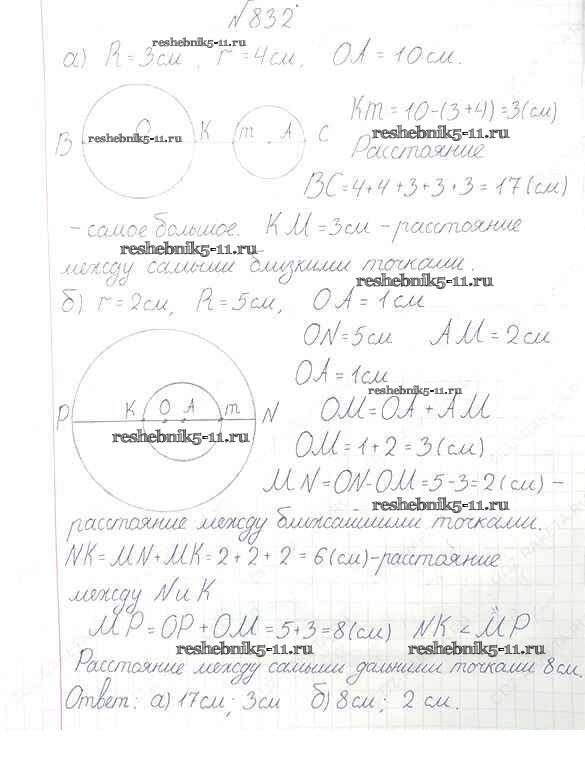 №832
reshebnik5-11.ru
а) R = 3 см, r = 4 см, OA = 10 см.
B O K m A C
reshebnik5-11.ru
Km = 10 - (3+4) = 3 (см)
reshebnik5-11.ru
Расстояние
BC = 4 + 4 + 3 + 3 + 3 = 17 (см)
- самое большое. KM = 3 см - расстояние
reshebnik5-11.ru
между самыми близкими точками.
reshebnik5-11.ru
б) r = 2 см, R = 5 см, OA = 1 см
ON = 5 см AM = 2 см
OA = 1 см
reshebnik5-11.ru
P K O A m N
reshebnik5-11.ru
OM = OA + AM
OM = 1 + 2 = 3 (см)
MN = ON - OM = 5 - 3 = 2 (см) -
reshebnik5-11.ru
расстояние между ближайшими точками.
NK = MN + MK = 2 + 2 + 2 = 6 (см) - расстояние
между N и K
MP = OP + OM = 5 + 3 = 8 (см) NK < MP
reshebnik5-11.ru reshebnik5-11.ru
Расстояние между самыми дальними точками 8 см.
Ответ: а) 17 см; 3 см б) 8 см; 2 см.
reshebnik5-11.ru